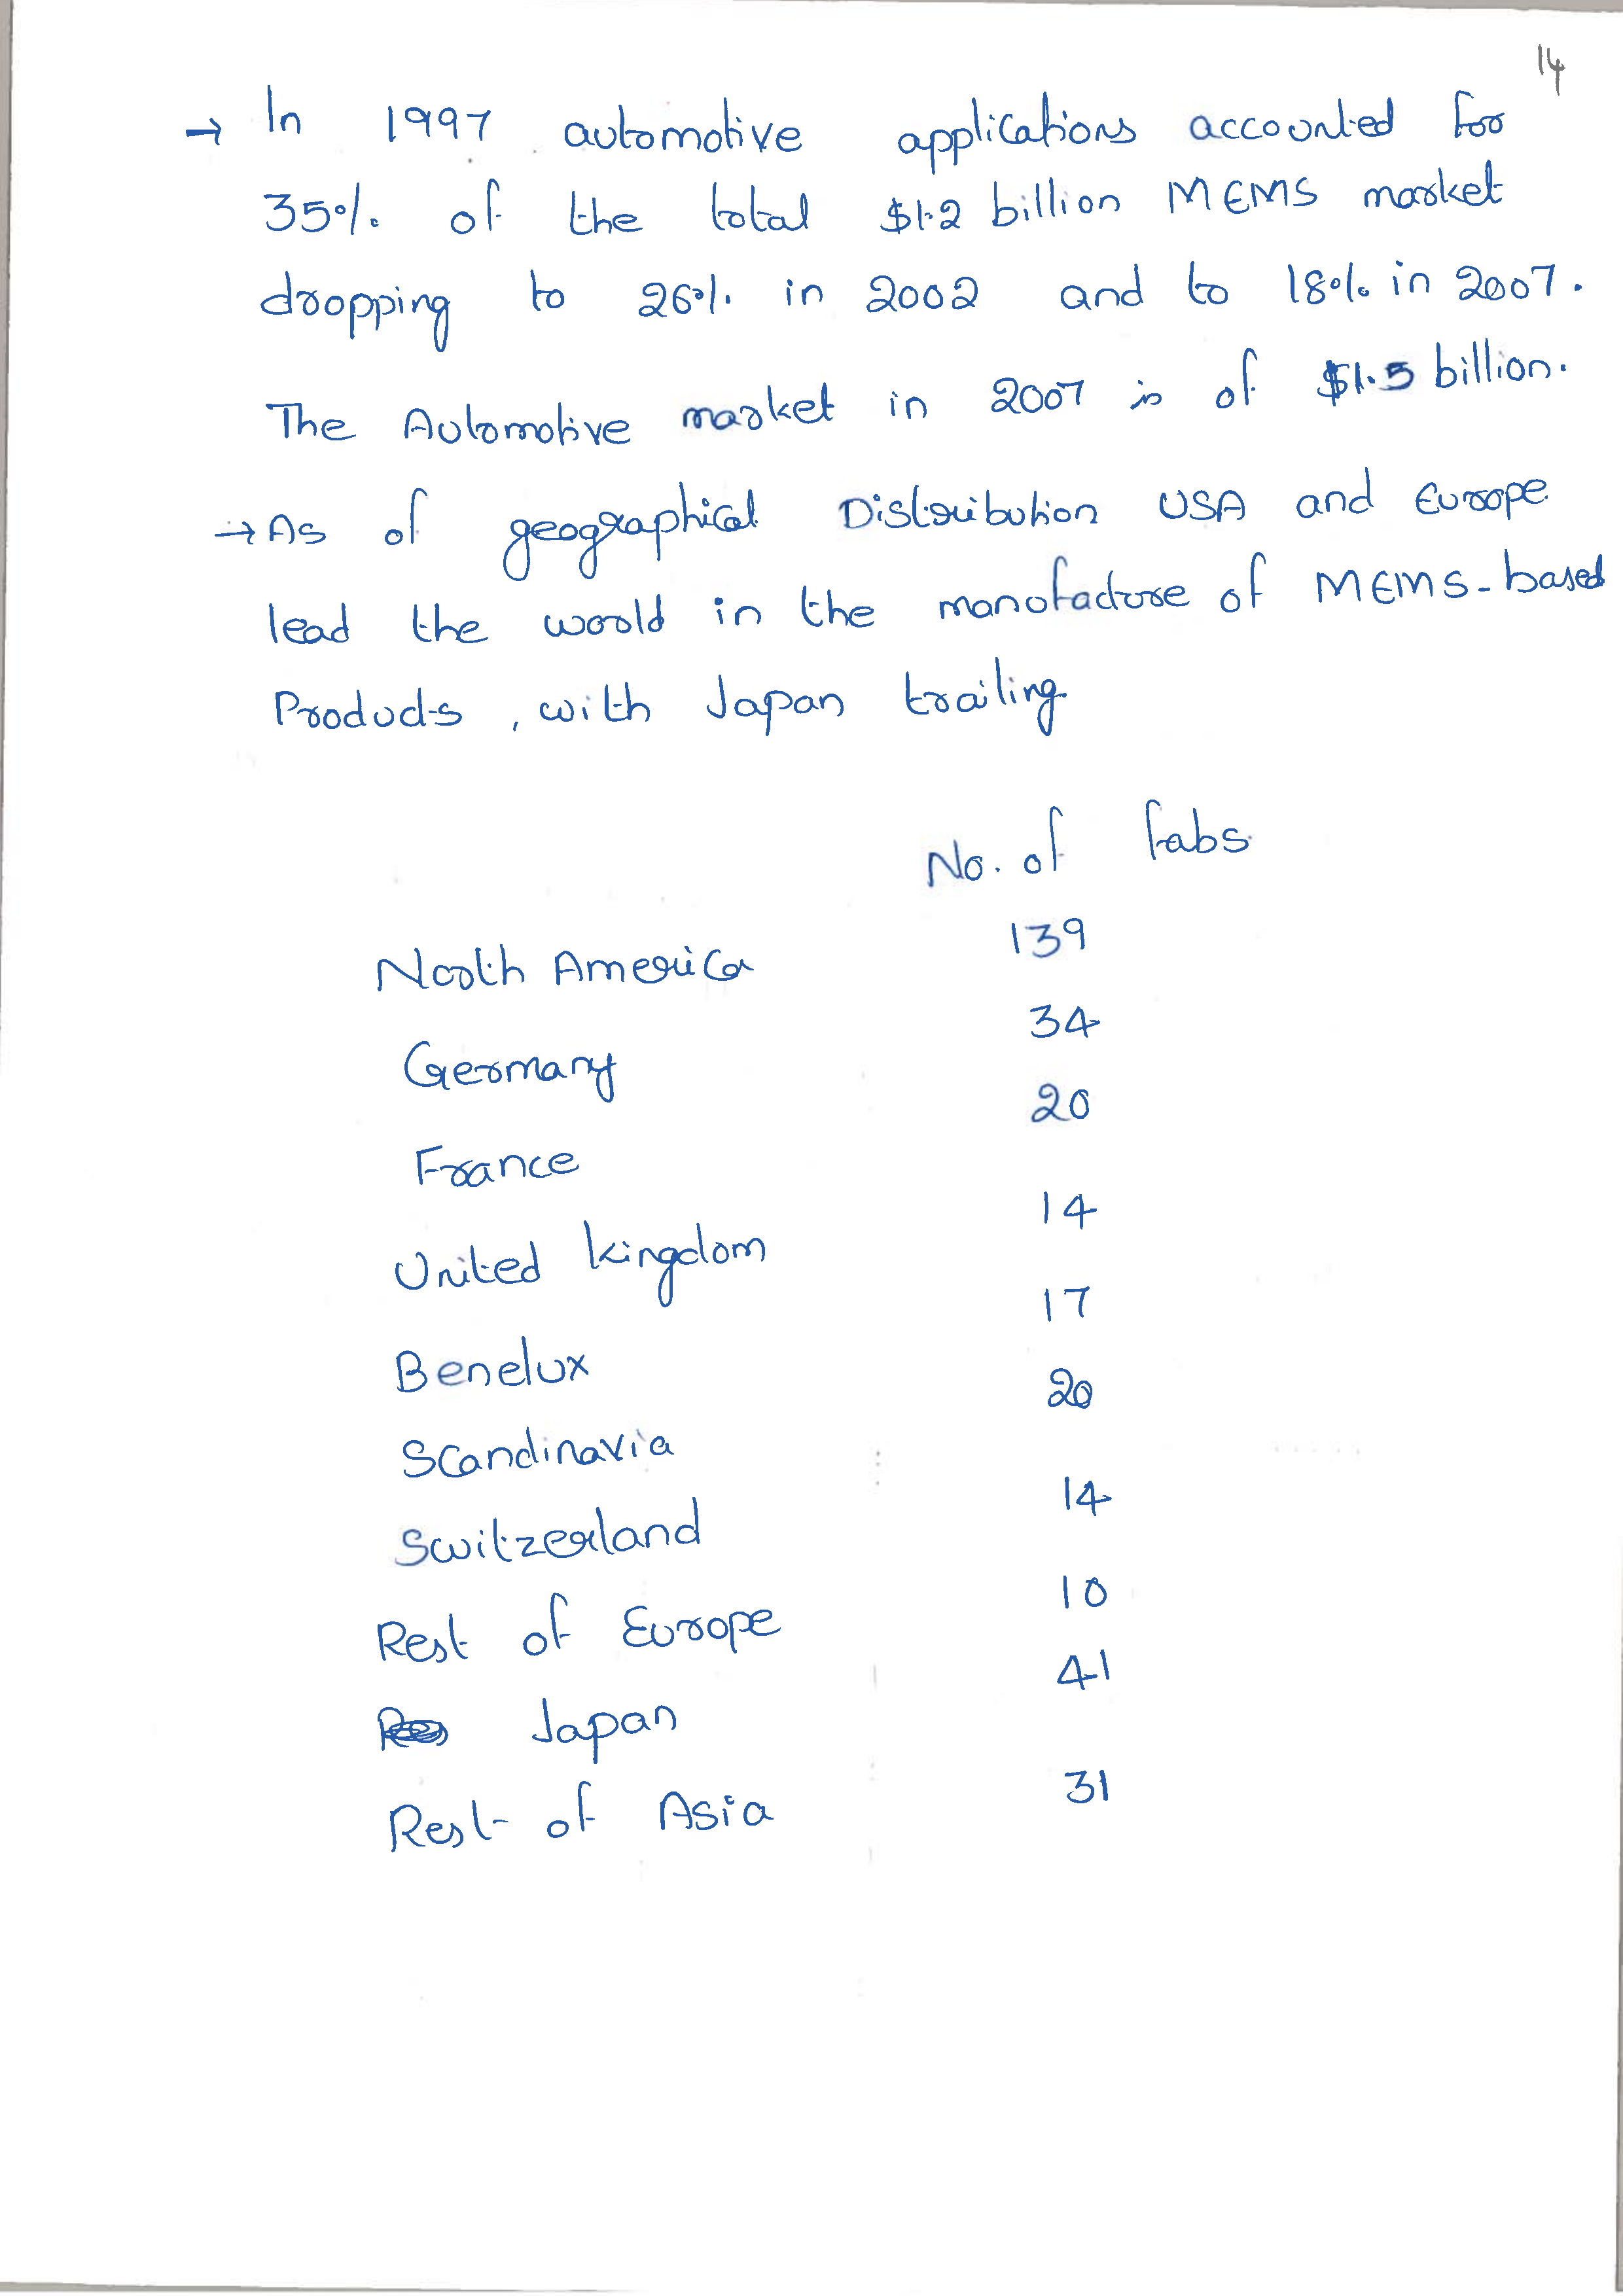 14
→ In 1997 automotive applications accounted for
35% of the total $1.2 billion MEMS market
dropping to 26% in 2002 and to 18% in 2007.
The Automotive market in 2007 is of $1.5 billion.
→ As of geographical Distribution USA and Europe
lead the world in the manufacture of MEMS-based
Products, with Japan trailing
No. of fabs
North America 139
Germany 34
France 20
United kingdom 14
Benelux 17
Scandinavia 20
Switzerland 14
Rest of Europe 10
Japan 41
Rest of Asia 31